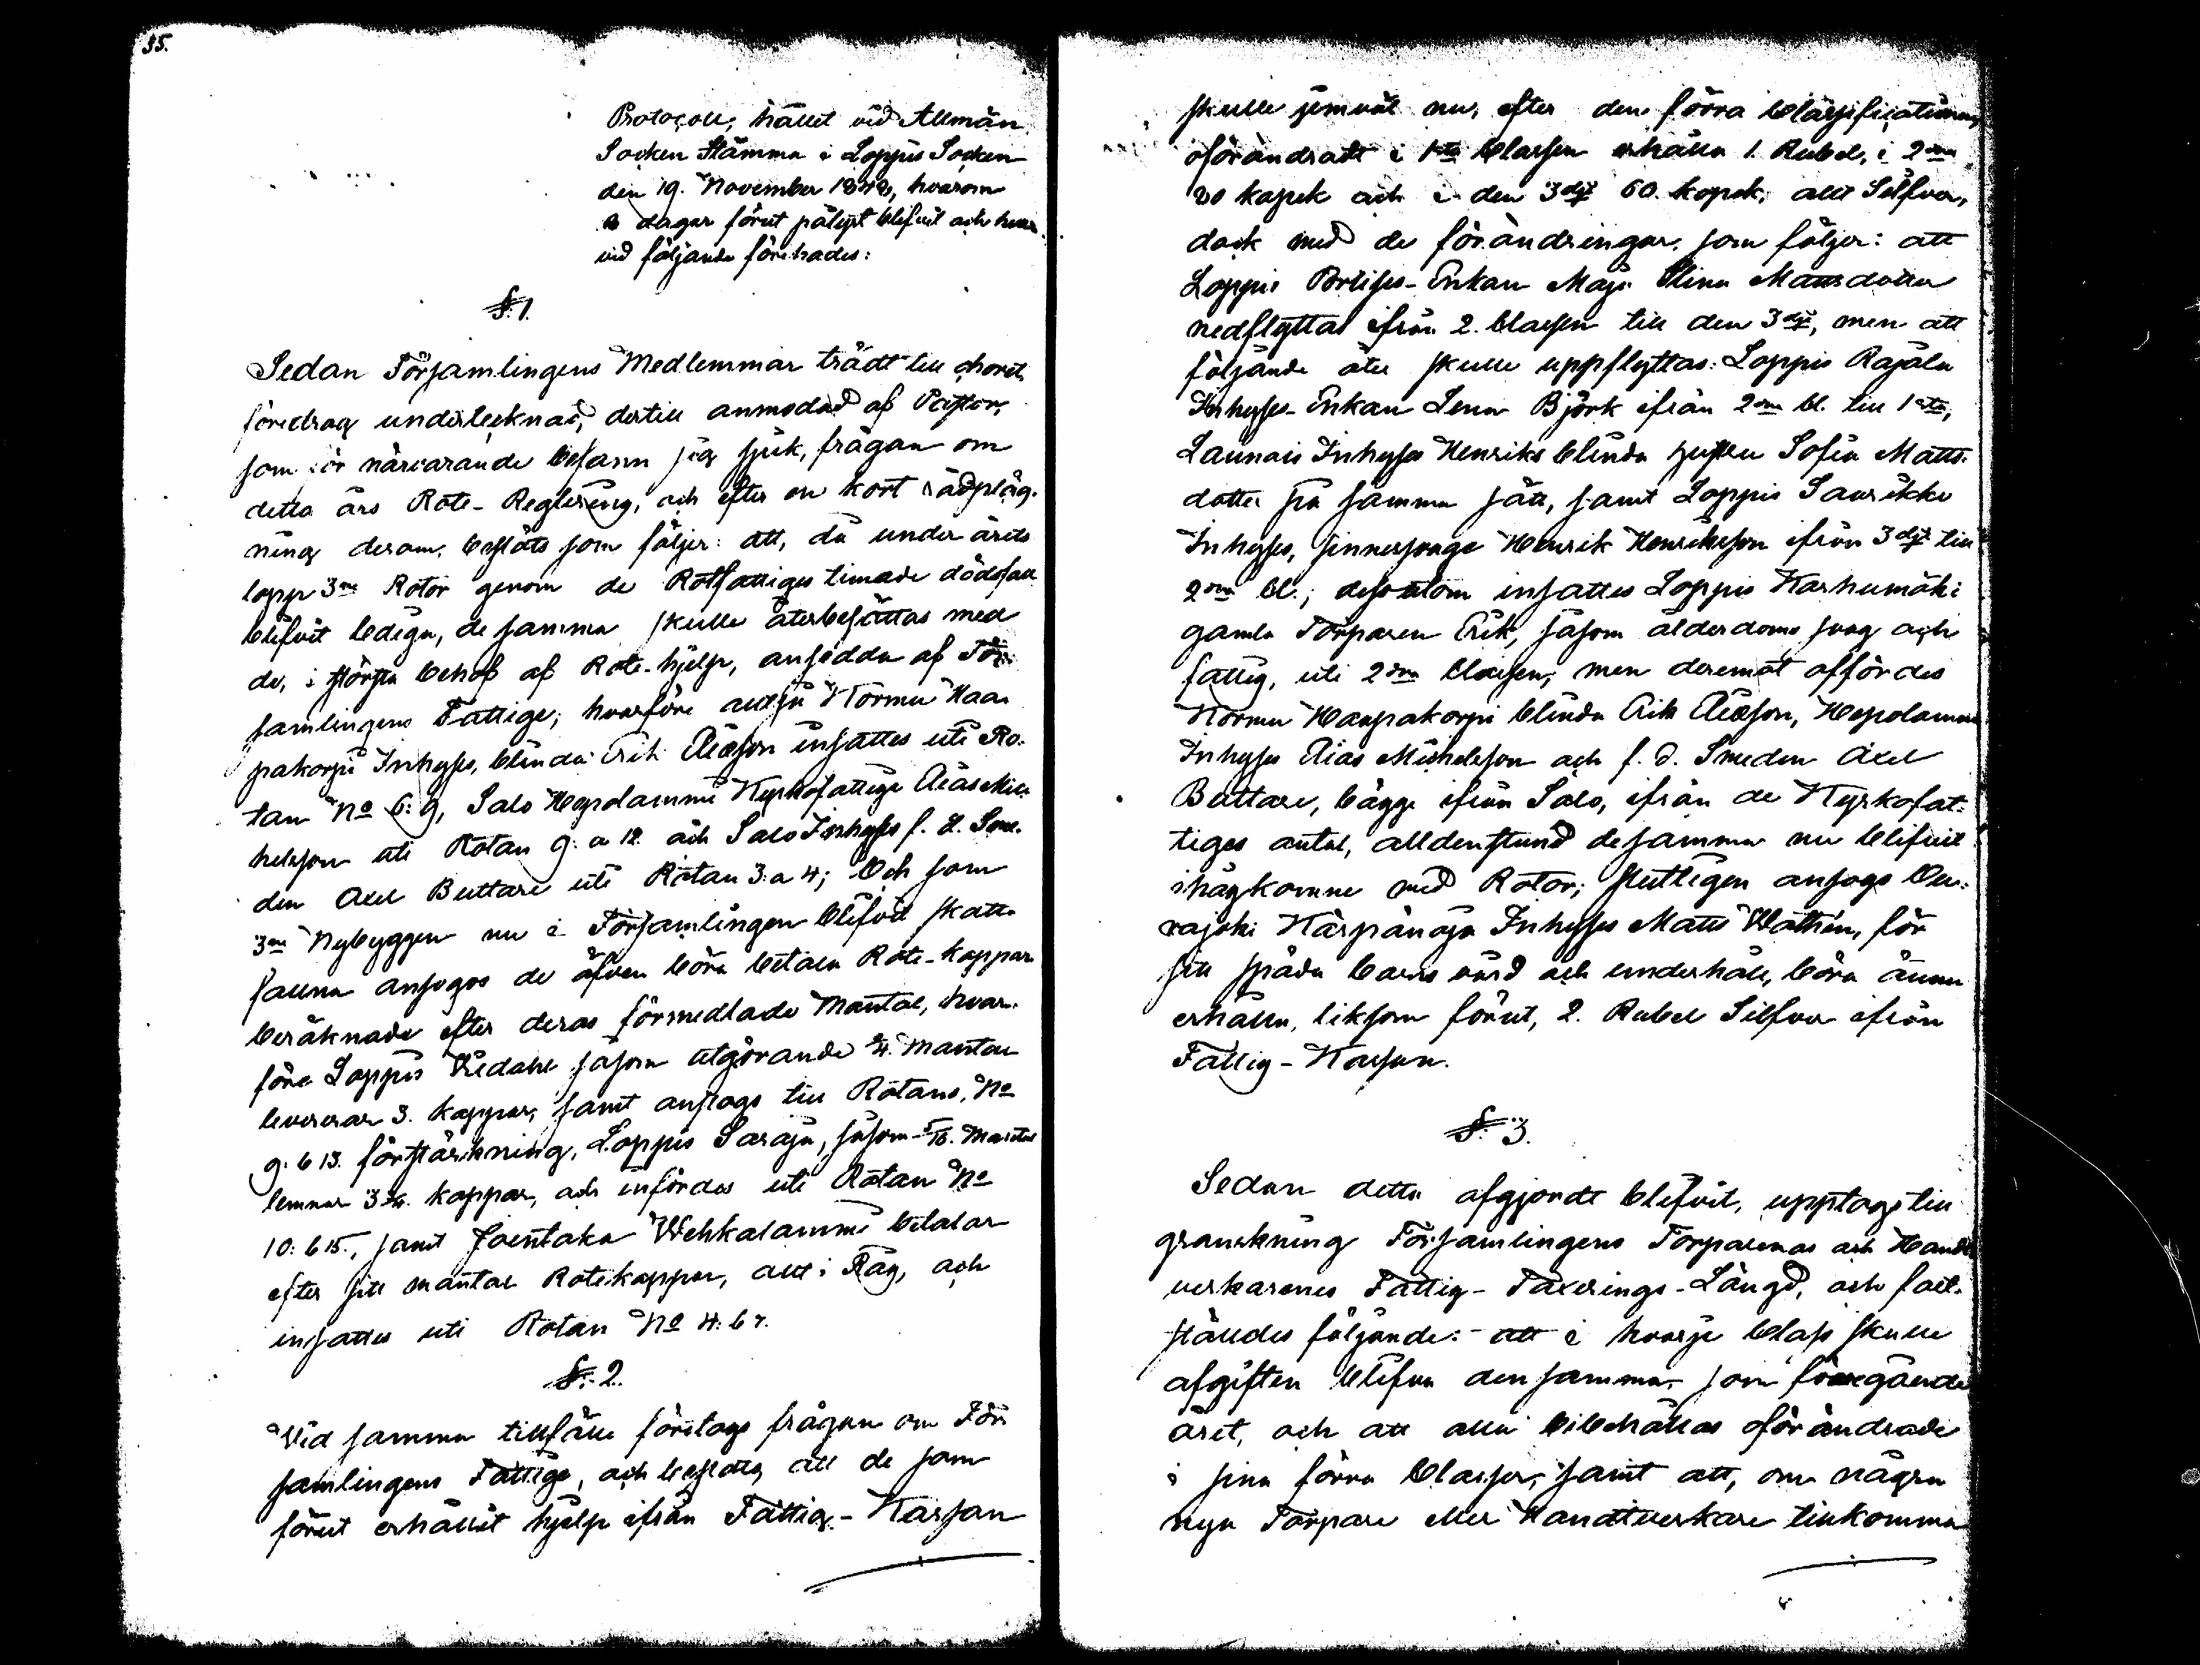 35.
Protocoll, hållet vid Allmän
Socken Stämma i Loppis Socken
den 19. November 1848, hvarom
8 dagar förut pålyst blifvit och hvar-
vid följande förehades:
§. 1.
Sedan Församlingens Medlemmar trädt till
föredrag undertecknad, dertill anmodad af Pastor,
som för närvarande befann sig sjuk, frågan om
detta års Rote-Reglering, och efter en kort rådpläg-
ning derom, beslöts som följer: att, då under årets
lopp 3ne Rotor genom de Rotfattiges timade dödsfall
blifvit lediga, de samma skulle återbesättas med
de, i största behof af Rote-hjelp, ansedda af För-
samlingens Fattige; hvarföre altså Kormu Haa-
pakorpi Inhyses, blinda Erik Eliæson insattes uti Ro-
tan No 6: 9, Salo Hepolammi Kyrkofattige Elias Mic-
helsson uti Rotan 9: a 12. och Salo Inhyses f. d. Sme-
den Axel Buttare uti Rotan 3: a 4; Och som
3ne Nybyggen nu i Församlingen blifvit skatt-
launa ansågos de äfven böra betala Rote-kappar
beräknade efter deras förmedlade Mantal, hvar-
före Loppis Kedahl såsom utgörande 1/4. Mantal
levererar 3. kappar, samt anslogs till Rotans, No
9. b 13. förstärkning, Loppis Saraja, såsom 5/16. Mantal
lemnar 3 3/4. kappar, och infördes uti Rotan No
10: b 15., samt Joentaka Wehkalammi betalar
efter sitt mantal Rotekappar, allt i Råg, och
insattes uti Rotan No 4: b 7.
§. 2.
Vid samma tillfälle företogs frågan om För
samlingens Fattige, och beslöts, att de som
förut erhållit hjelp ifrån Fattig-Kassan
skulle jemväl nu, efter den förra Classificationen,
oförändradt i 1sta Classen erhålla 1. Rubel, i 2dra
80 kopek och i den 3dje 60. kopek, allt Silfver,
dock med de förändringar, som följer: att
Loppis Prusses-Enkan Maja Stina Mattsdotter
nedflyttas ifrån 2. Classen till den 3dje, men att
följande åter skulle uppflyttas: Loppis Rajala
Inhyses-Enkan Lena Björk ifrån 2dra Cl. till 1sta,
Launais Inhyses Henriks blinda hustru Sofia Matts-
dotter på samma sätt, samt Loppis Saurikko
Inhyses, sinnessvage Henrik Henriksson ifrån 3dje till
2dra Cl.; dessutom insattes Loppis Karhumäki
gamla Torparen Erik, såsom ålderdoms svag och
fattig, uti 2dra Classen, men deremot affördes
Kormu Haapakorpi blinda Erik Eliæson, Hepolammi
Inhyses Elias Michelsson och f. d. Smeden Axel
Buttare, bägge ifrån Salo, ifrån de Kyrkofat-
tiges antal, alldenstund desamma nu blifvit
ihågkomne med Rotor; slutligen ansågs
rajoki Kärpänoja Inhyses Matts Wathén, för
sitt späda barns vård och underhåll, böra ännu
erhålla, liksom förut, 2. Rubel Silfver ifrån
Fattig-Kassan.
§. 3.
Sedan detta afgjordt blifvit, upptogs till
granskning Församlingens Torparenas och Handt
verkarenes Fattig-Taxerings-Längd, och fast-
ställdes följande: att i hvarje Class skulle
afgiften blifva densamma, som föregående
året, och att alla bibehållas oförändrade
i sina förra Classer, samt att, om några
nya Torpare eller Handtverkare tillkomma